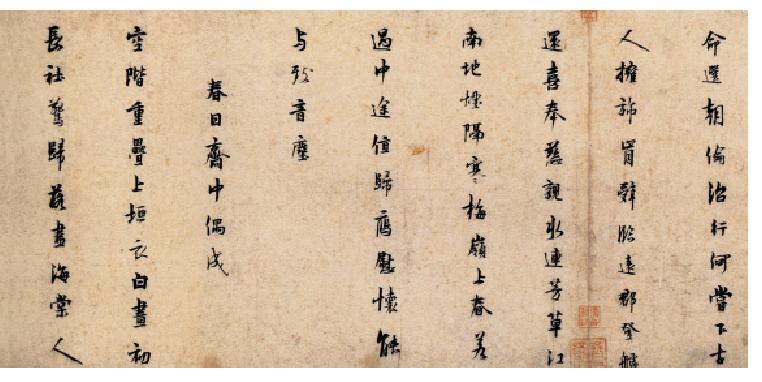 命選朝倫治行何當下古
人擁旆肯辭臨遠郡登艫
還喜奉慈親水連芳草江
南地煙隔寒梅嶺上春若
過中途值歸鴈慰懷能
与致音塵
春日齋中偶成
空階重疊上垣衣白晝初
長社鷰歸落盡海棠人